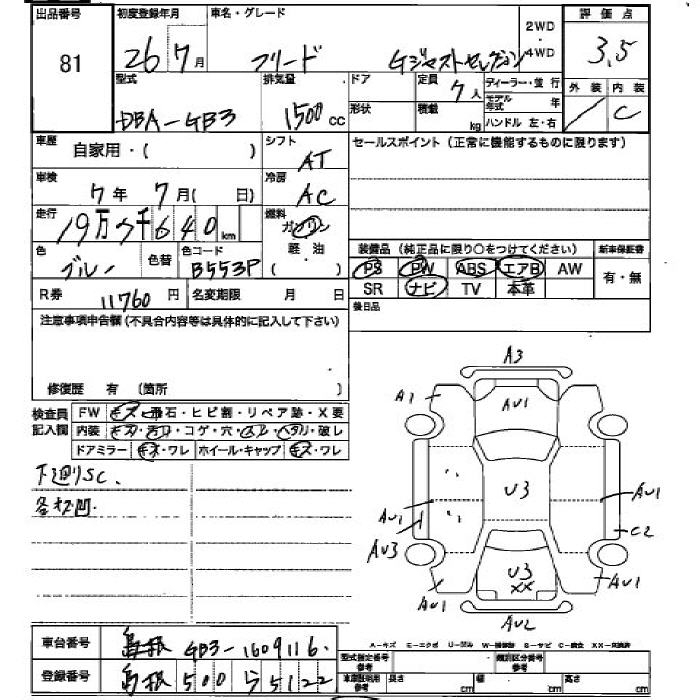 出品番号
81
初度登録年月
26 7月
車名・グレード
フリード Gジャストセレクション
2WD
・
4WD
評価点
3.5
外装 内装
C
型式
DBA-GB3
排気量
1500 cc
ドア
形状
定員
7人
積載
kg
ディーラー・並行
モデル年式 年
ハンドル 左・右
車歴
自家用・( )
シフト
AT
セールスポイント(正常に機能するものに限ります)
車検
7年 7月( 日)
冷房
AC
走行
19万 千 640 km
燃料
ガソリン
軽・油
( )
色
ブルー
色替
色コード
B553P
装備品(純正品に限り○をつけてください)
新車保証書
PS PW ABS エアB AW
有・無
SR ナビ TV 本革
R券 11760 円
名変期限 月 日
後日品
注意事項申告欄(不具合内容等は具体的に記入して下さい)
修復歴 有(箇所 )
検査員
記入欄
FW キズ・飛石・ヒビ割・リペア跡・X要
内装 キズ・汚れ・コゲ・穴・スレ・ヘタリ・破レ
ドアミラー キズ・ワレ ホイール・キャップ キズ・ワレ
下廻りSC.
A3
A1
AU1
U3
AU1
AU1
AU3
C2
U3
XX
AU1
AU1
AU2
車台番号
GB3-1609116
登録番号
島根 500 ら 5122
A-キズ E-エクボ U-凹ム S-サビ C-腐食 XX-交換済
型式指定番号
参考
類別区分番号
参考
車庫証明
参考
長さ cm 幅 cm 高さ cm